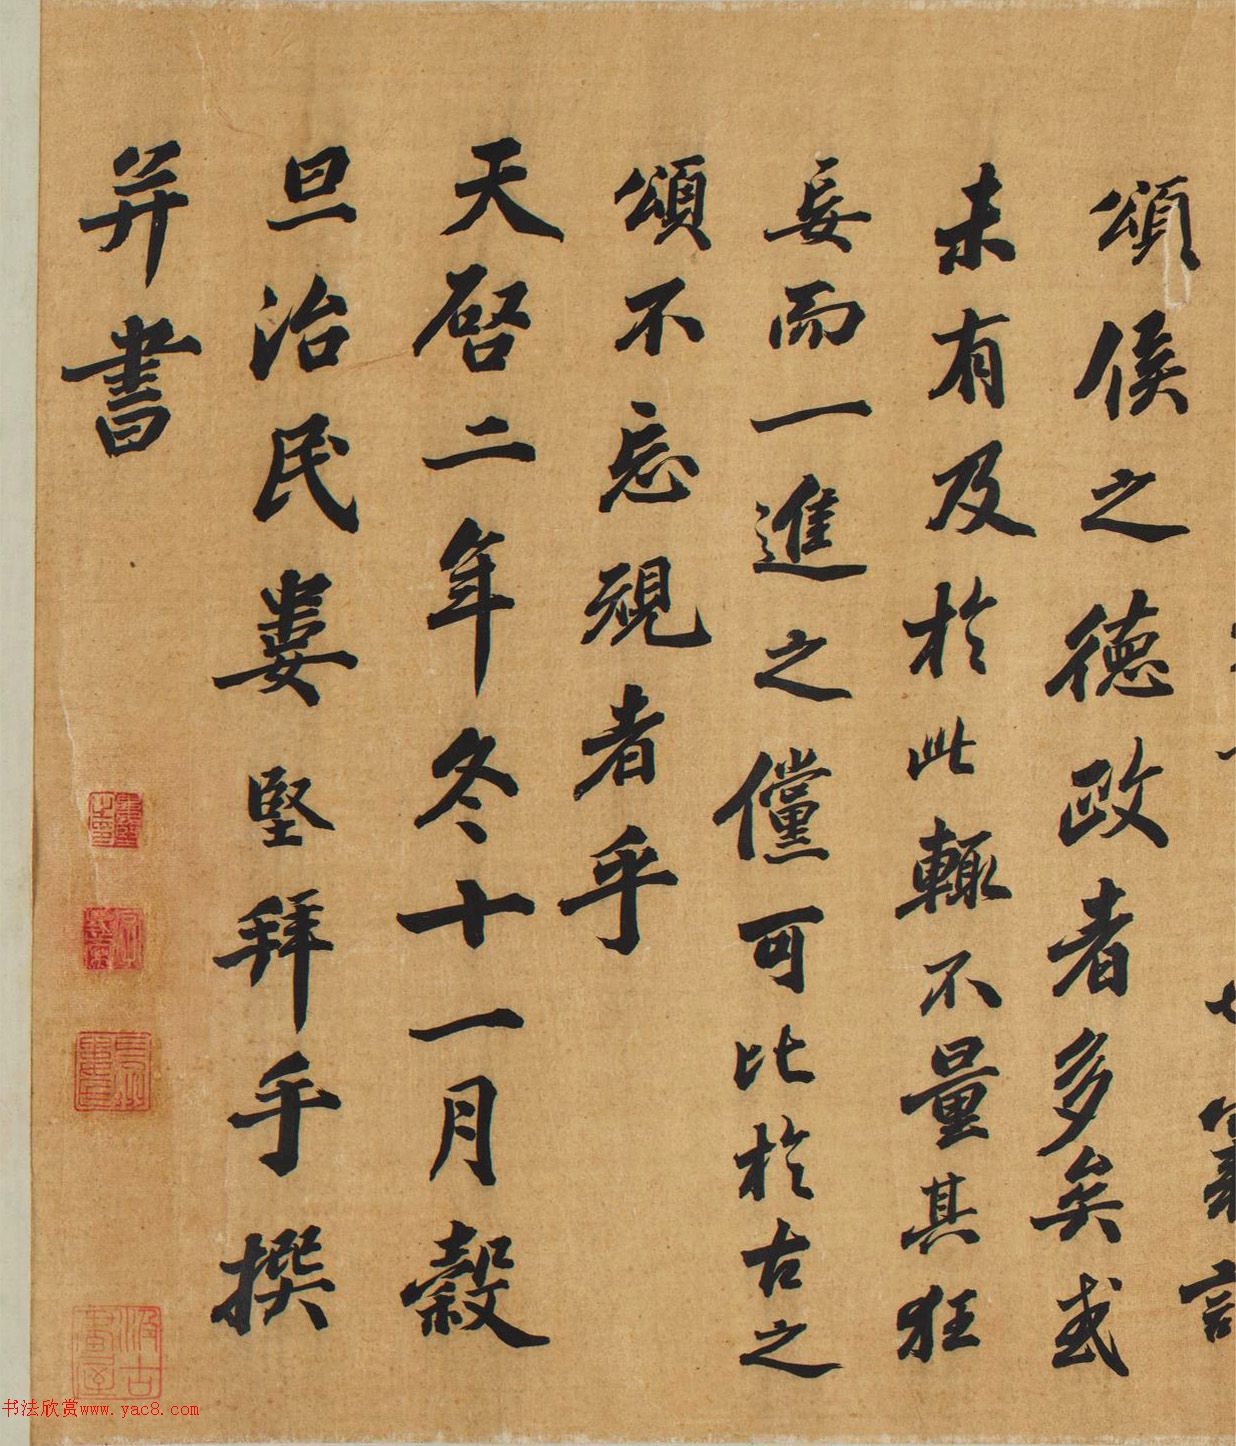 頌侯之德政者多矣或
未有及於此輙不量其狂
妄而一進之儻可比於古之
頌不忘規者乎
天啓二年冬十一月穀
旦治民婁堅拜手撰
并書
婁堅之印
汲古書屋
书法欣赏www.yac8.com